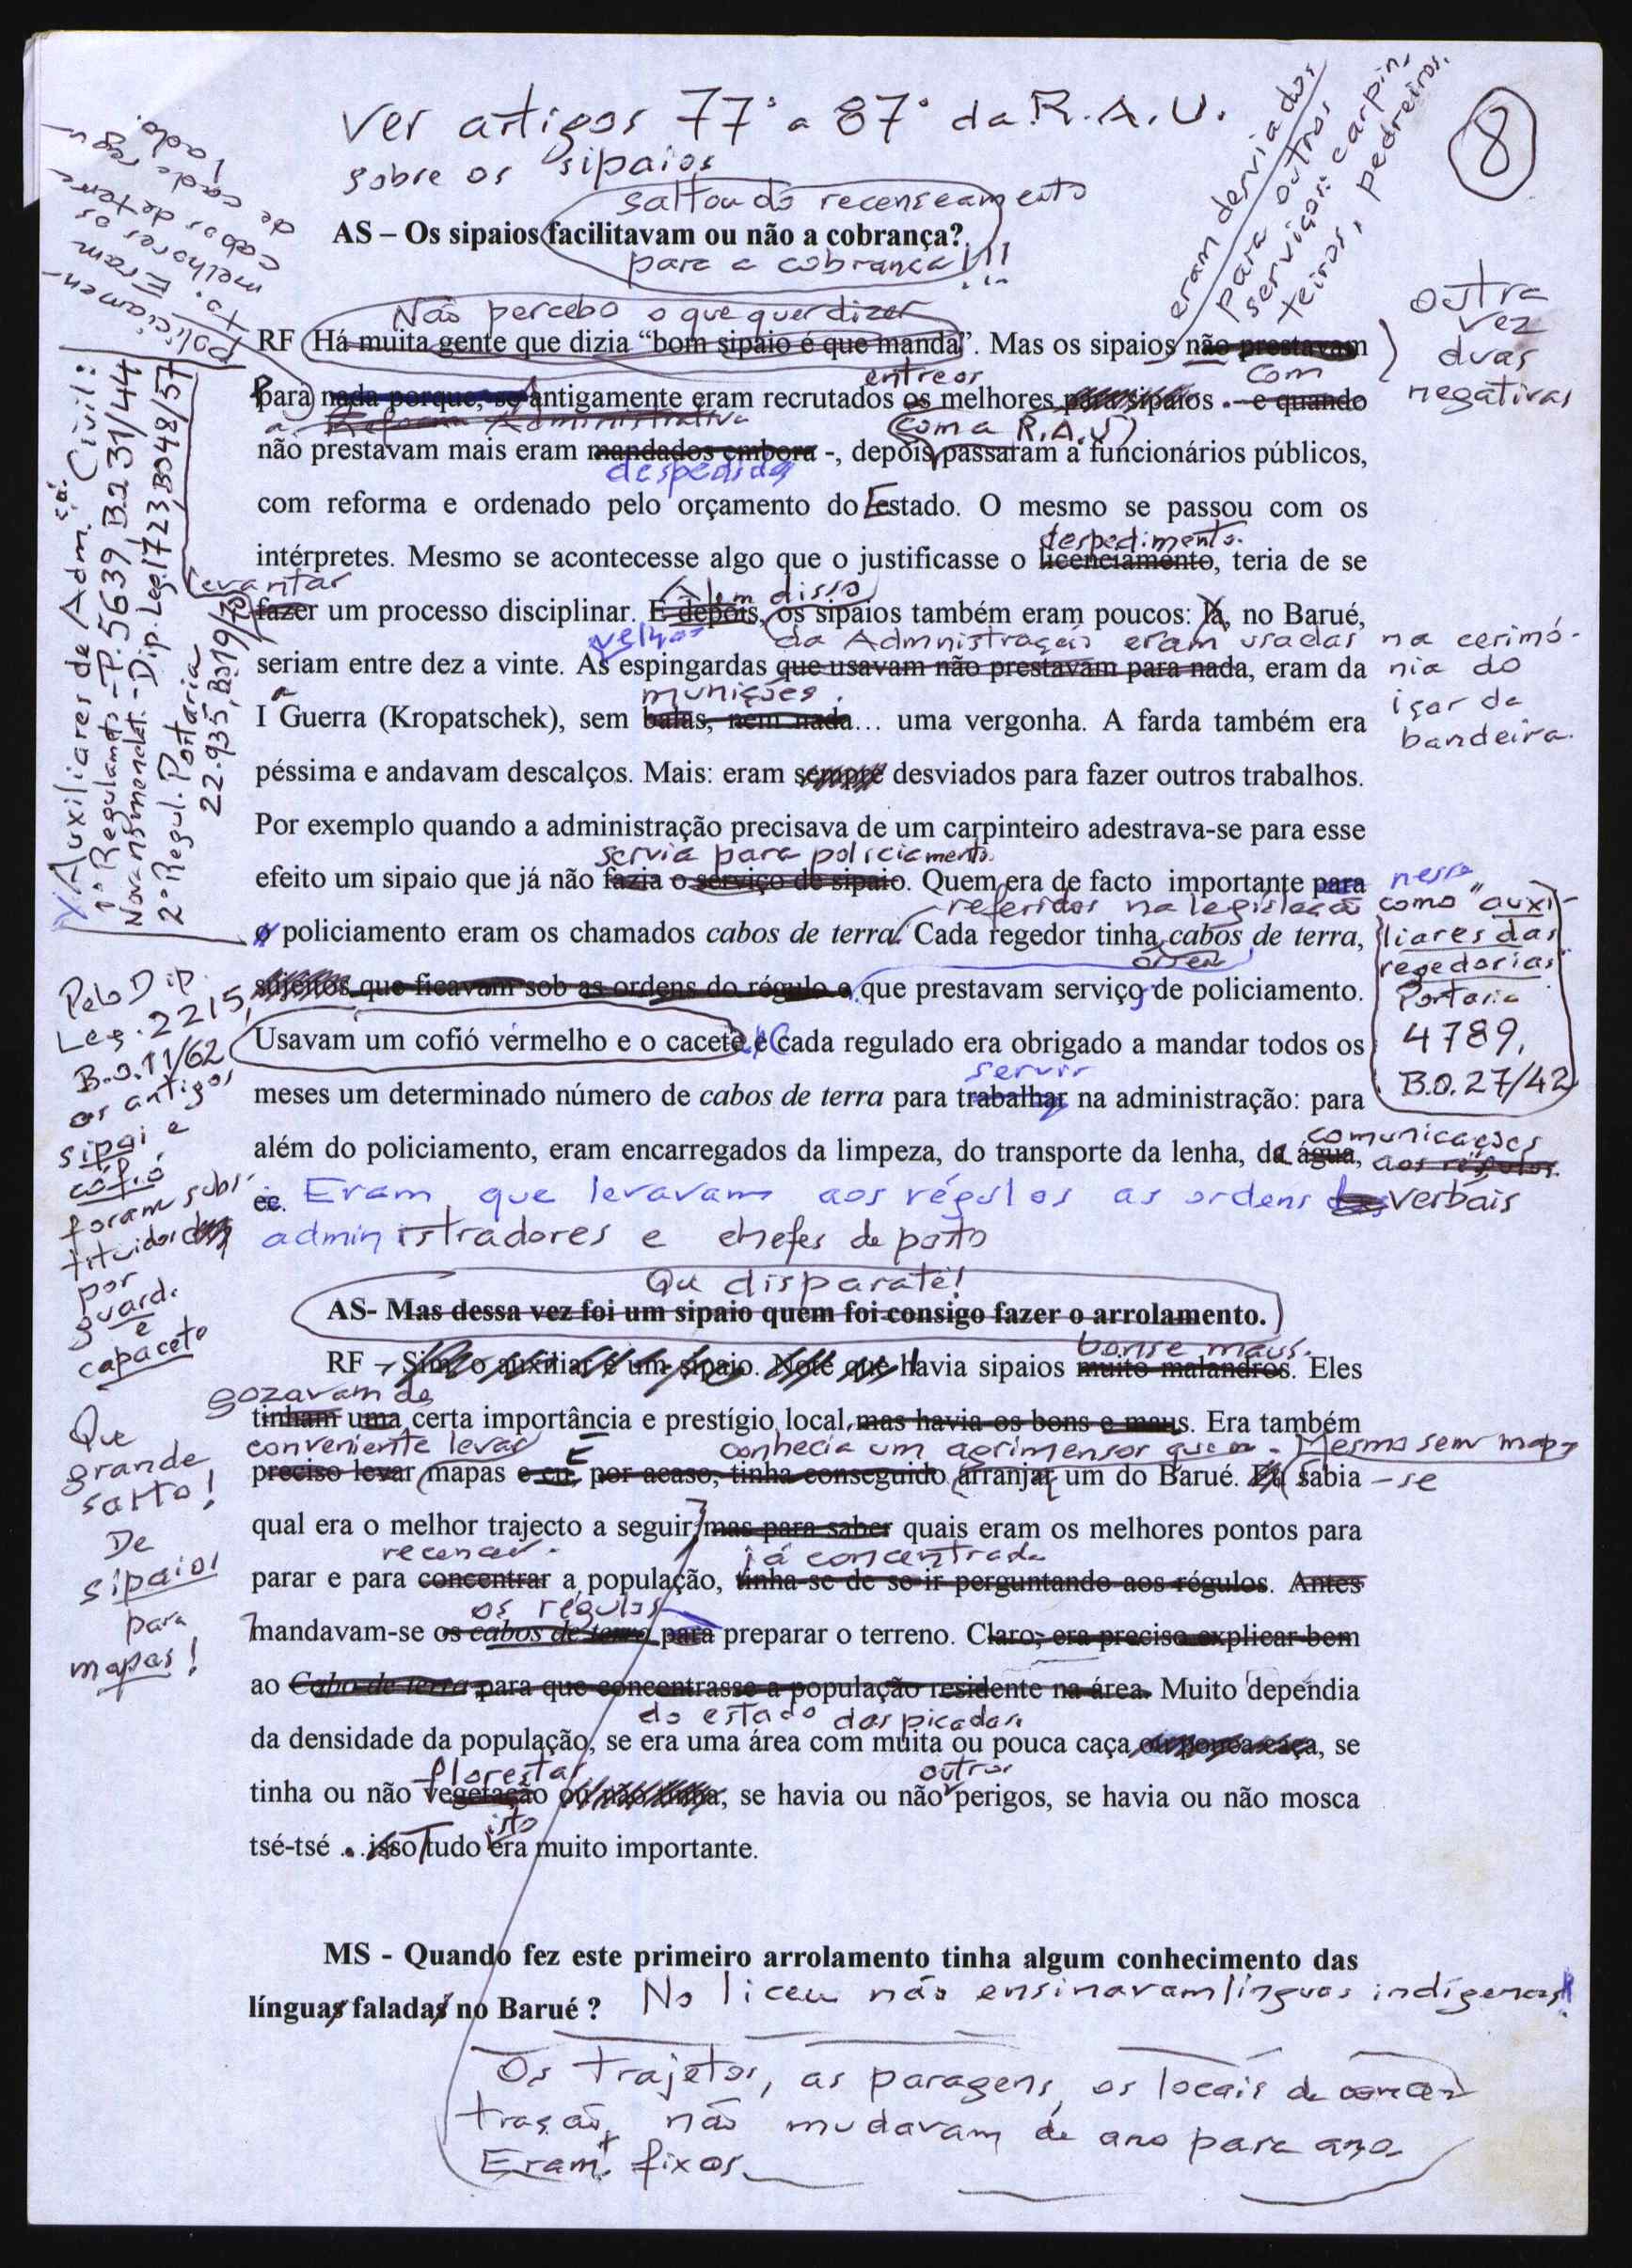 8
Ver artigos 77º a 87º da R.A.U.
sobre os sipaios
saltou do recenseamento
AS – Os sipaios facilitavam ou não a cobrança?
para a cobrança!!!
eram desviados
para outros
serviços: carpin-
teiros, pedreiros.
policiamen-
to. Eram
melhores os
cabos de terra
de cada regu-
lado.
Não percebo o que quer dizer
RF Há muita gente que dizia “bom sipaio é que manda”. Mas os sipaios não prestavam
outra
vez
duas
negativas
entre os
com
para nada porque, se antigamente eram recrutados os melhores para sipaios - e quando
a Reforma Administrativa
(com a R.A.U)
não prestavam mais eram mandados embora -, depois passaram a funcionários públicos,
despedidos
com reforma e ordenado pelo orçamento do Estado. O mesmo se passou com os
despedimento
intérpretes. Mesmo se acontecesse algo que o justificasse o licenciamento, teria de se
levantar
Alem disso
fazer um processo disciplinar. E depois, os sipaios também eram poucos: lá, no Barué,
velhas
da Admnistração eram usadas na cerimó-
nia do
içar da
bandeira.
seriam entre dez a vinte. As espingardas que usavam não prestavam para nada, eram da
munições.
I ª Guerra (Kropatschek), sem balas, nem nada… uma vergonha. A farda também era
péssima e andavam descalços. Mais: eram sempre desviados para fazer outros trabalhos.
Por exemplo quando a administração precisava de um carpinteiro adestrava-se para esse
servia para policiamento.
efeito um sipaio que já não fazia o serviço de sipaio. Quem era de facto importante para
nesse
referidos na legislação como "auxi-
liares das
regedorias"
Portaria
4789,
B.O. 27/42
o policiamento eram os chamados cabos de terra. Cada regedor tinha cabos de terra,
sujeitos que ficavam sob as ordens do régulo e que prestavam serviço de policiamento.
Usavam um cofió vermelho e o cacete e Cada regulado era obrigado a mandar todos os
servir
meses um determinado número de cabos de terra para trabalhar na administração: para
comunicações
além do policiamento, eram encarregados da limpeza, do transporte da lenha, da água, aos régulos.
ec. Eram que levavam aos régulos as ordens verbais
administradores e chefes de posto
X Auxiliares de Adm.ção Civil:
1º Regulamto - P. 5639, B.O. 31/44
Nova nomenclat. - Dip. Leg. 1723, BO 48/57
2º Regul. Portaria
22.935, BO 19/70
Pelo Dip.
Leg. 2215,
B.O. 11/62
os antigos
sipai e
cofió
foram subs-
tituidos
por
guard.
e
capacete
Que disparate!
AS- Mas dessa vez foi um sipaio quem foi consigo fazer o arrolamento.
bons e maus.
RF – Sim, o auxiliar é um sipaio. Note que havia sipaios muito malandros. Eles
gozavam de
tinham uma certa importância e prestígio local, mas havia os bons e maus. Era também
conveniente levar
E conhecia um agrimensor quem
Mesmo sem mapa
preciso levar mapas e eu, por acaso, tinha conseguido arranjar um do Barué. Eu sabia -se
qual era o melhor trajecto a seguir, mas para saber quais eram os melhores pontos para
recensear.
já concentrada
parar e para concentrar a população, tinha-se de se ir perguntando aos régulos. Antes
os régulos
mandavam-se os cabos de terra para preparar o terreno. Claro, era preciso explicar bem
ao Cabo de terra para que concentrasse a população residente na área. Muito dependia
do estado das picadas.
da densidade da população, se era uma área com muita ou pouca caça ou pouca caça, se
florestas
outros
tinha ou não vegetação ou não tinha, se havia ou não perigos, se havia ou não mosca
isto
tsé-tsé … isso tudo era muito importante.
Que
grande
salto!
De
sipaios
para
mapas!
MS - Quando fez este primeiro arrolamento tinha algum conhecimento das
línguas faladas no Barué ? No liceu não ensinavam línguas indígenas!
Os trajetos, as paragens, os locais de concen
tração, não mudavam de ano para ano.
Eram fixos.